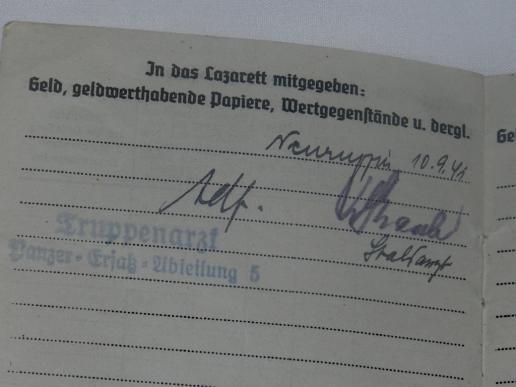 In das Lazarett mitgegeben:
Geld, geldwerthabende Papiere, Wertgegenstände u. dergl.
Ge
Neuruppin 10.9.41
Truppenarzt
Panzer-Ersatz-Abteilung 5